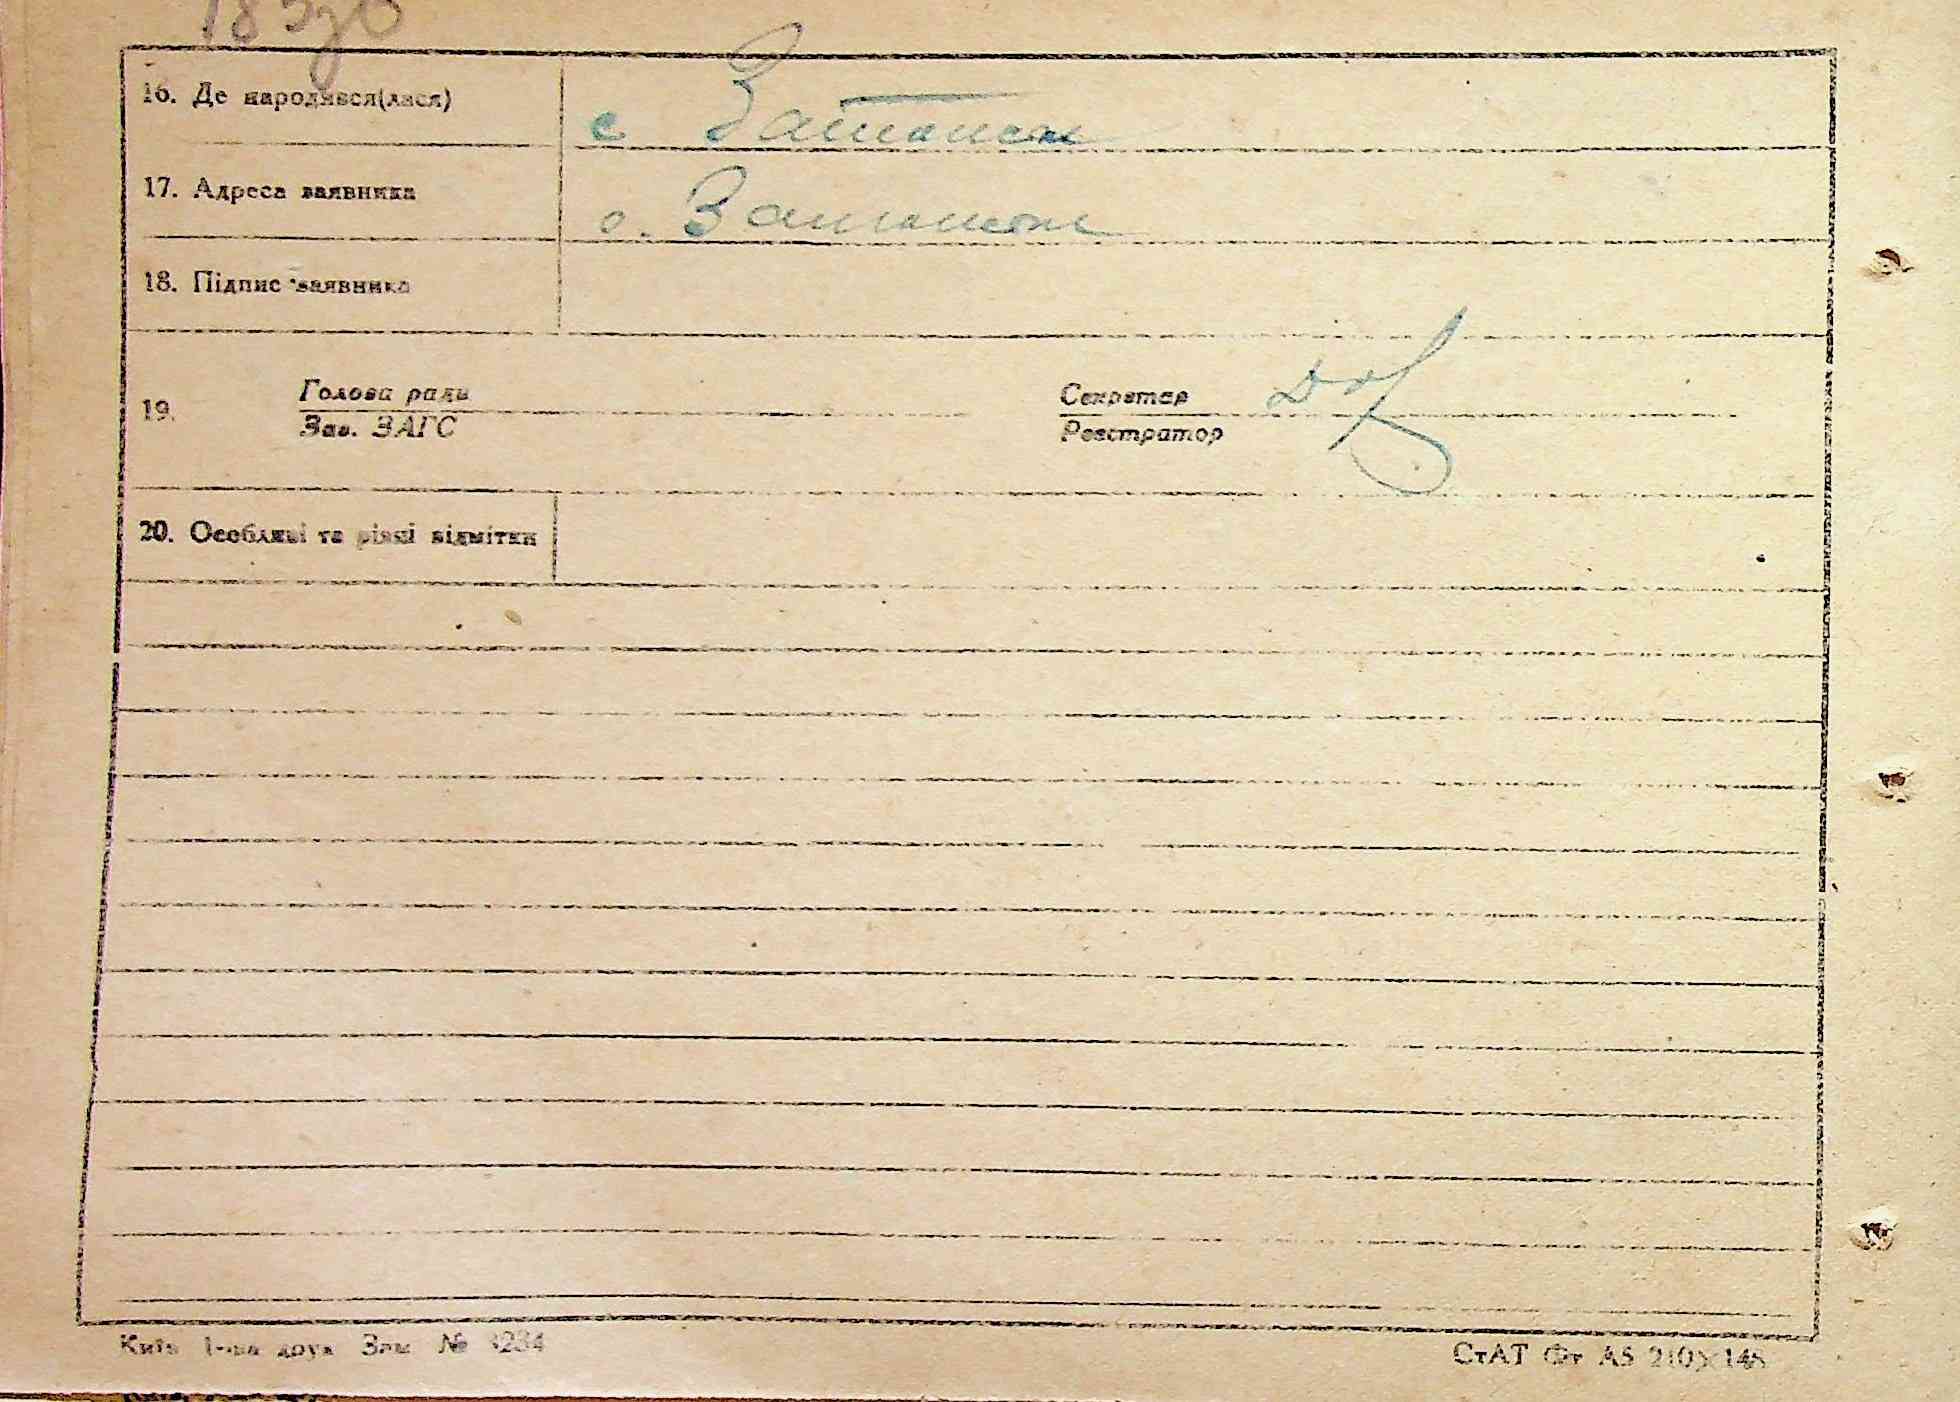 16. Де народився(лася)
с
17. Адреса заявника
с.
18. Підпис заявника
19. Голова ради Секретар
Зав. ЗАГС Реєстратор
20. Особливі та різні відмітки
Київ 1-ша друк Зам № 3234 СтАТ Фт А5 210×148